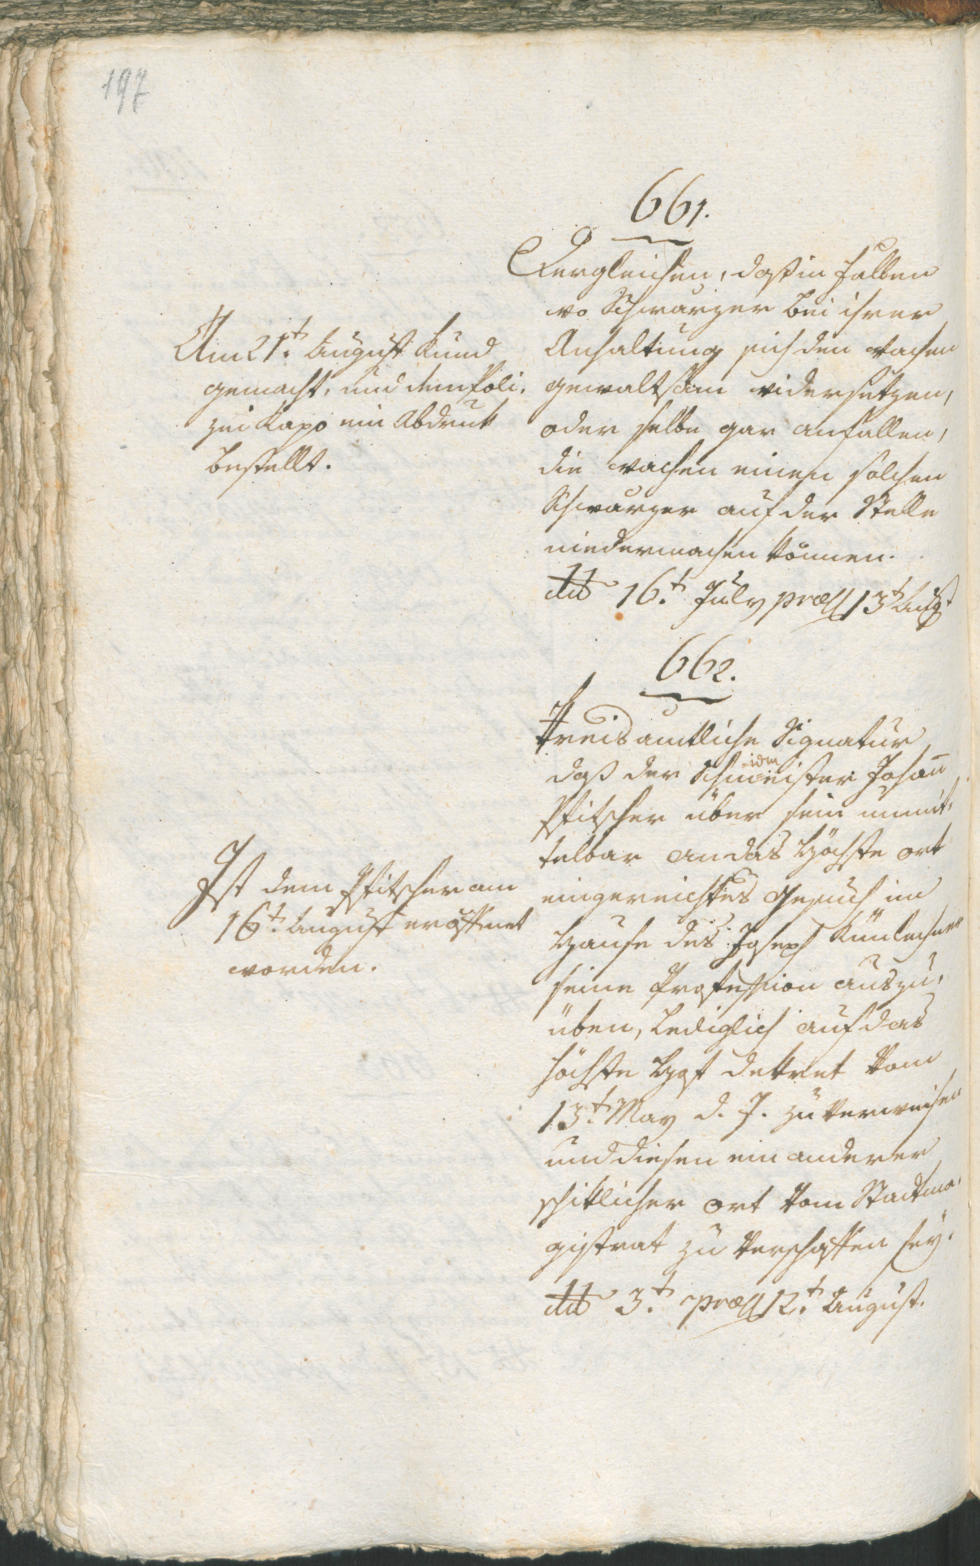 197
661.
Dergleichen, daß in Fällen
wo Schwärzer bei ihrer
Anhaltung sich den Wachen
gewaltsam widersetzen,
oder selbe gar anfallen,
die Wachen einen solchen
Schwärzer auf der Stelle
niedermachen können.
ddto 16t. July præs 13t Augst
Am 21t. August kund
gemacht, und dem Poli-
zei Kapo ein Abdruk
bestellt.
662.
Kreisamtliche Signatur
daß der Schmidmeister Johan̄
Pfitscher über sein unmit-
telbar an das Höchste Ort
eingereichtes Gesuch im
Hause des Joseph
seine Profession auszu-
üben, Lediglich auf das
höchste Hof Dekret vom
13t. May d. J. zu verweisen
und diesen ein anderer
schiklicher Ort vom Stadtma-
gistrat zu verschaffen sey.
ddto 3t. præs 12t. August.
Ist dem Pfitscher am
16t. August eröffnet
worden.